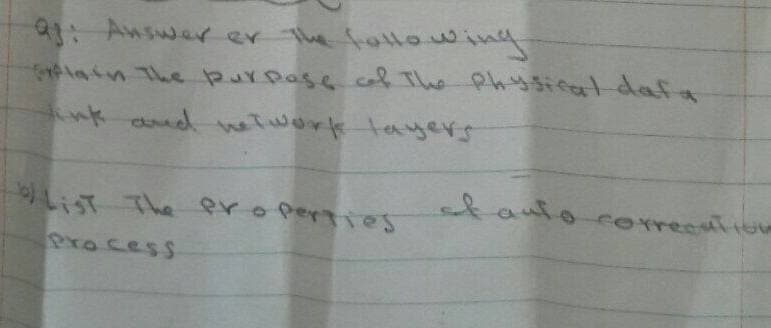 Q3: Answer er The following
Explain The purpose of The physical data
link and network layers
b) List The properties of auto correcution
process